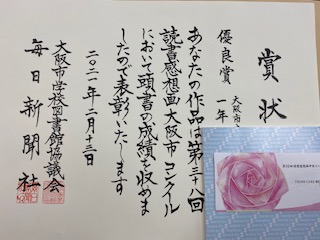 賞状
優良賞
大阪市
一年
あなたの作品は第三十八回
読書感想画大阪市コンクール
において頭書の成績を収めま
したので表彰いたします
二〇二一年二月十三日
大阪市学校図書館協議会
毎日新聞社